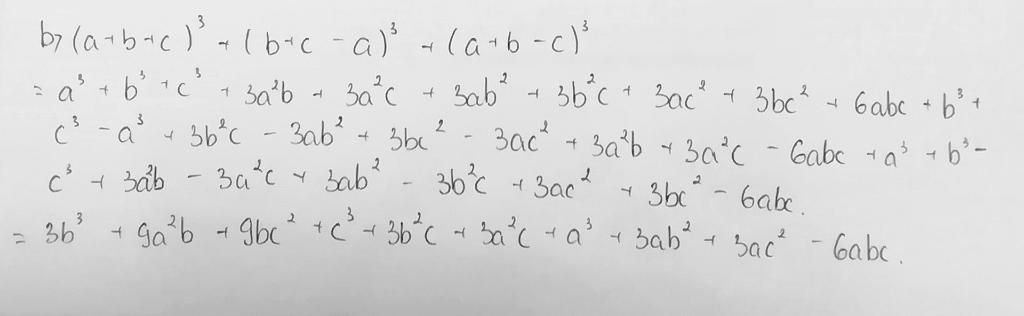 b) (a+b+c)³ + (b+c-a)³ + (a+b-c)³
= a³ + b³ + c³ + 3a²b + 3a²c + 3ab² + 3b²c + 3ac² + 3bc² + 6abc + b³ +
c³ - a³ + 3b²c - 3ab² + 3bc² - 3ac² + 3a²b + 3a²c - 6abc + a³ + b³ -
c³ + 3a²b - 3a²c + 3ab² - 3b²c + 3ac² + 3bc² - 6abc.
= 3b³ + 9a²b + 9bc² + c³ + 3b²c + 3a²c + a³ + 3ab² + 3ac² - 6abc.